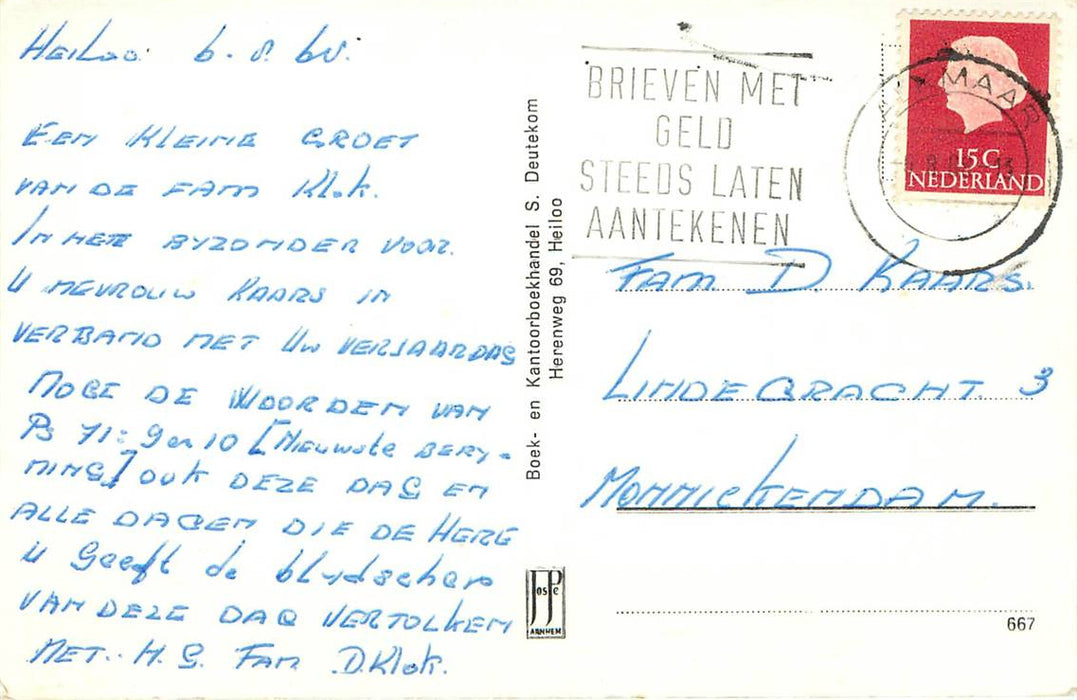 Heiloo 6.8.60.
EEN KLEINE GROET
VAN DE FAM Klok.
IN HET BYZONDER VOOR.
U MEVROUW KAARS IN
VERBAND MET UW VERJAARDAG
MOGE DE WOORDEN VAN
Ps 71:9 en 10 [Nieuwste BERY-
MING] ook DEZE DAG EN
ALLE DAGEN DIE DE HERE
U Geeft de blydschap
VAN DEZE DAG VERTOLKEN
MET. H. G. FAM D. Klok.
Boek- en Kantoorboekhandel S. Deutekom
Herenweg 69, Heiloo
JosPe
ARNHEM
BRIEVEN MET
GELD
STEEDS LATEN
AANTEKENEN
MAAR
15 C
NEDERLAND
FAM D KAARS.
LINDEGRACHT. 3
MONNICKENDAM.
667